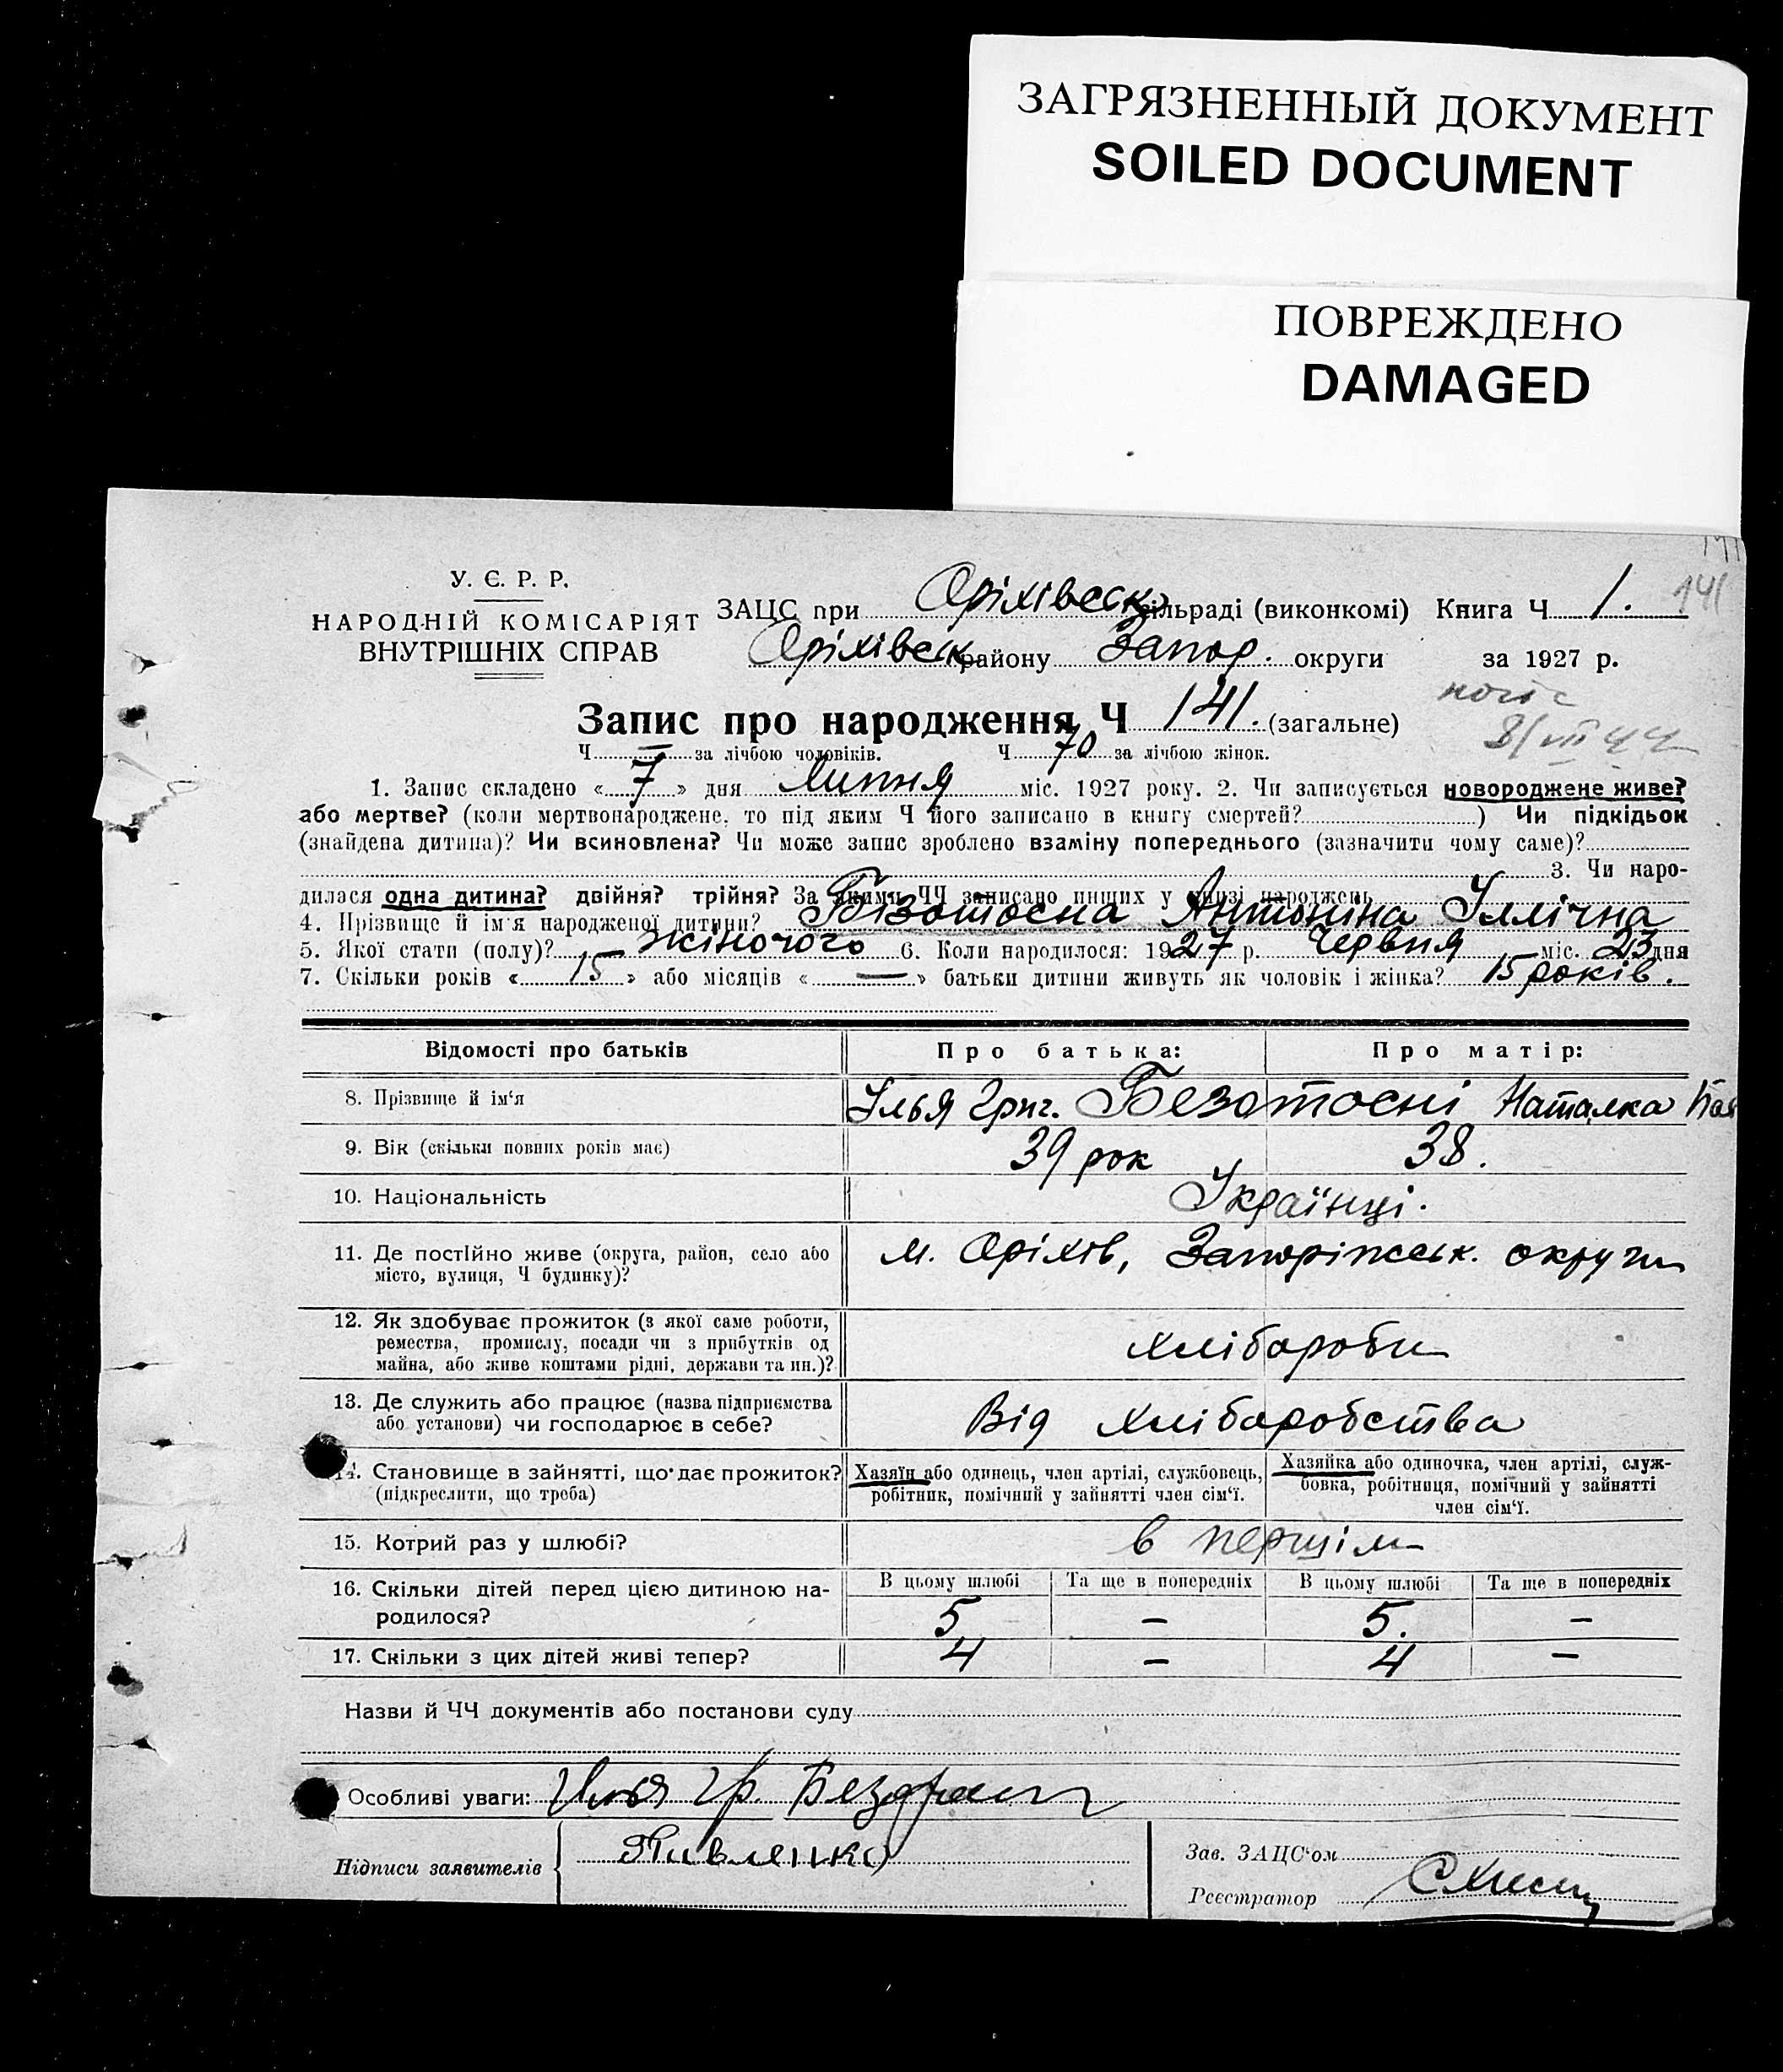 ЗАГРЯЗНЕННЫЙ ДОКУМЕНТ
SOILED DOCUMENT
ПОВРЕЖДЕНО
DAMAGED
141
У. Є. Р. Р.
НАРОДНІЙ КОМІСАРІЯТ
ВНУТРІШНІХ СПРАВ
ЗАЦС при Оріхівськ сільраді (виконкомі) Книга Ч 1.
Оріхівськ району Запор. округи за 1927 р.
Запис про народження Ч 141. (загальне)
Ч — за лічбою чоловіків. Ч 70 за лічбою жінок.
1. Запис складено « 7 » дня Липня міс. 1927 року. 2. Чи записується новороджене живе?
або мертве? (коли мертвонароджене, то під яким Ч його записано в книгу смертей? ) Чи підкідьок
(знайдена дитина)? Чи всиновлена? Чи може запис зроблено взаміну попереднього (зазначити чому саме)?
3. Чи наро-
дилася одна дитина? двійня? трійня? За якими ЧЧ записано инших у книзі народжень
4. Прізвище й ім'я народженої дитини? Бізотосна Антоніна Іллічна
5. Якої стати (полу)? жіночого 6. Коли народилося: 1927 р. Червня міс. 23 дня
7. Скільки років « 15 » або місяців « — » батьки дитини живуть як чоловік і жінка? 15 років.
Відомості про батьків Про батька: Про матір:
8. Прізвище й ім'я Ілья Григ. Безотосні Наталка
9. Вік (скільки повних років має) 39 рок 38.
10. Національність Українці.
11. Де постійно живе (округа, район, село або
місто, вулиця, Ч будинку)? м. Оріхів, Запоріжськ. округи
12. Як здобуває прожиток (з якої саме роботи,
ремества, промислу, посади чи з прибутків од
майна, або живе коштами рідні, держави та ин.)? хлібороби
13. Де служить або працює (назва підприємства
або установи) чи господарює в себе? Від хліборобства
14. Становище в зайнятті, що дає прожиток?
(підкреслити, що треба)
Хазяїн або одинець, член артілі, службовець,
робітник, помічний у зайнятті член сім'ї.
Хазяйка або одиночка, член артілі, служ-
бовка, робітниця, помічний у зайнятті
член сім'ї.
15. Котрий раз у шлюбі? в першім
16. Скільки дітей перед цією дитиною на-
родилося?
В цьому шлюбі Та ще в попередніх В цьому шлюбі Та ще в попередніх
5 — 5. —
17. Скільки з цих дітей живі тепер? 4 — 4 —
Назви й ЧЧ документів або постанови суду
Особливі уваги: Илья Гр.
Підписи заявителів
Зав. ЗАЦС'ом
Реєстратор